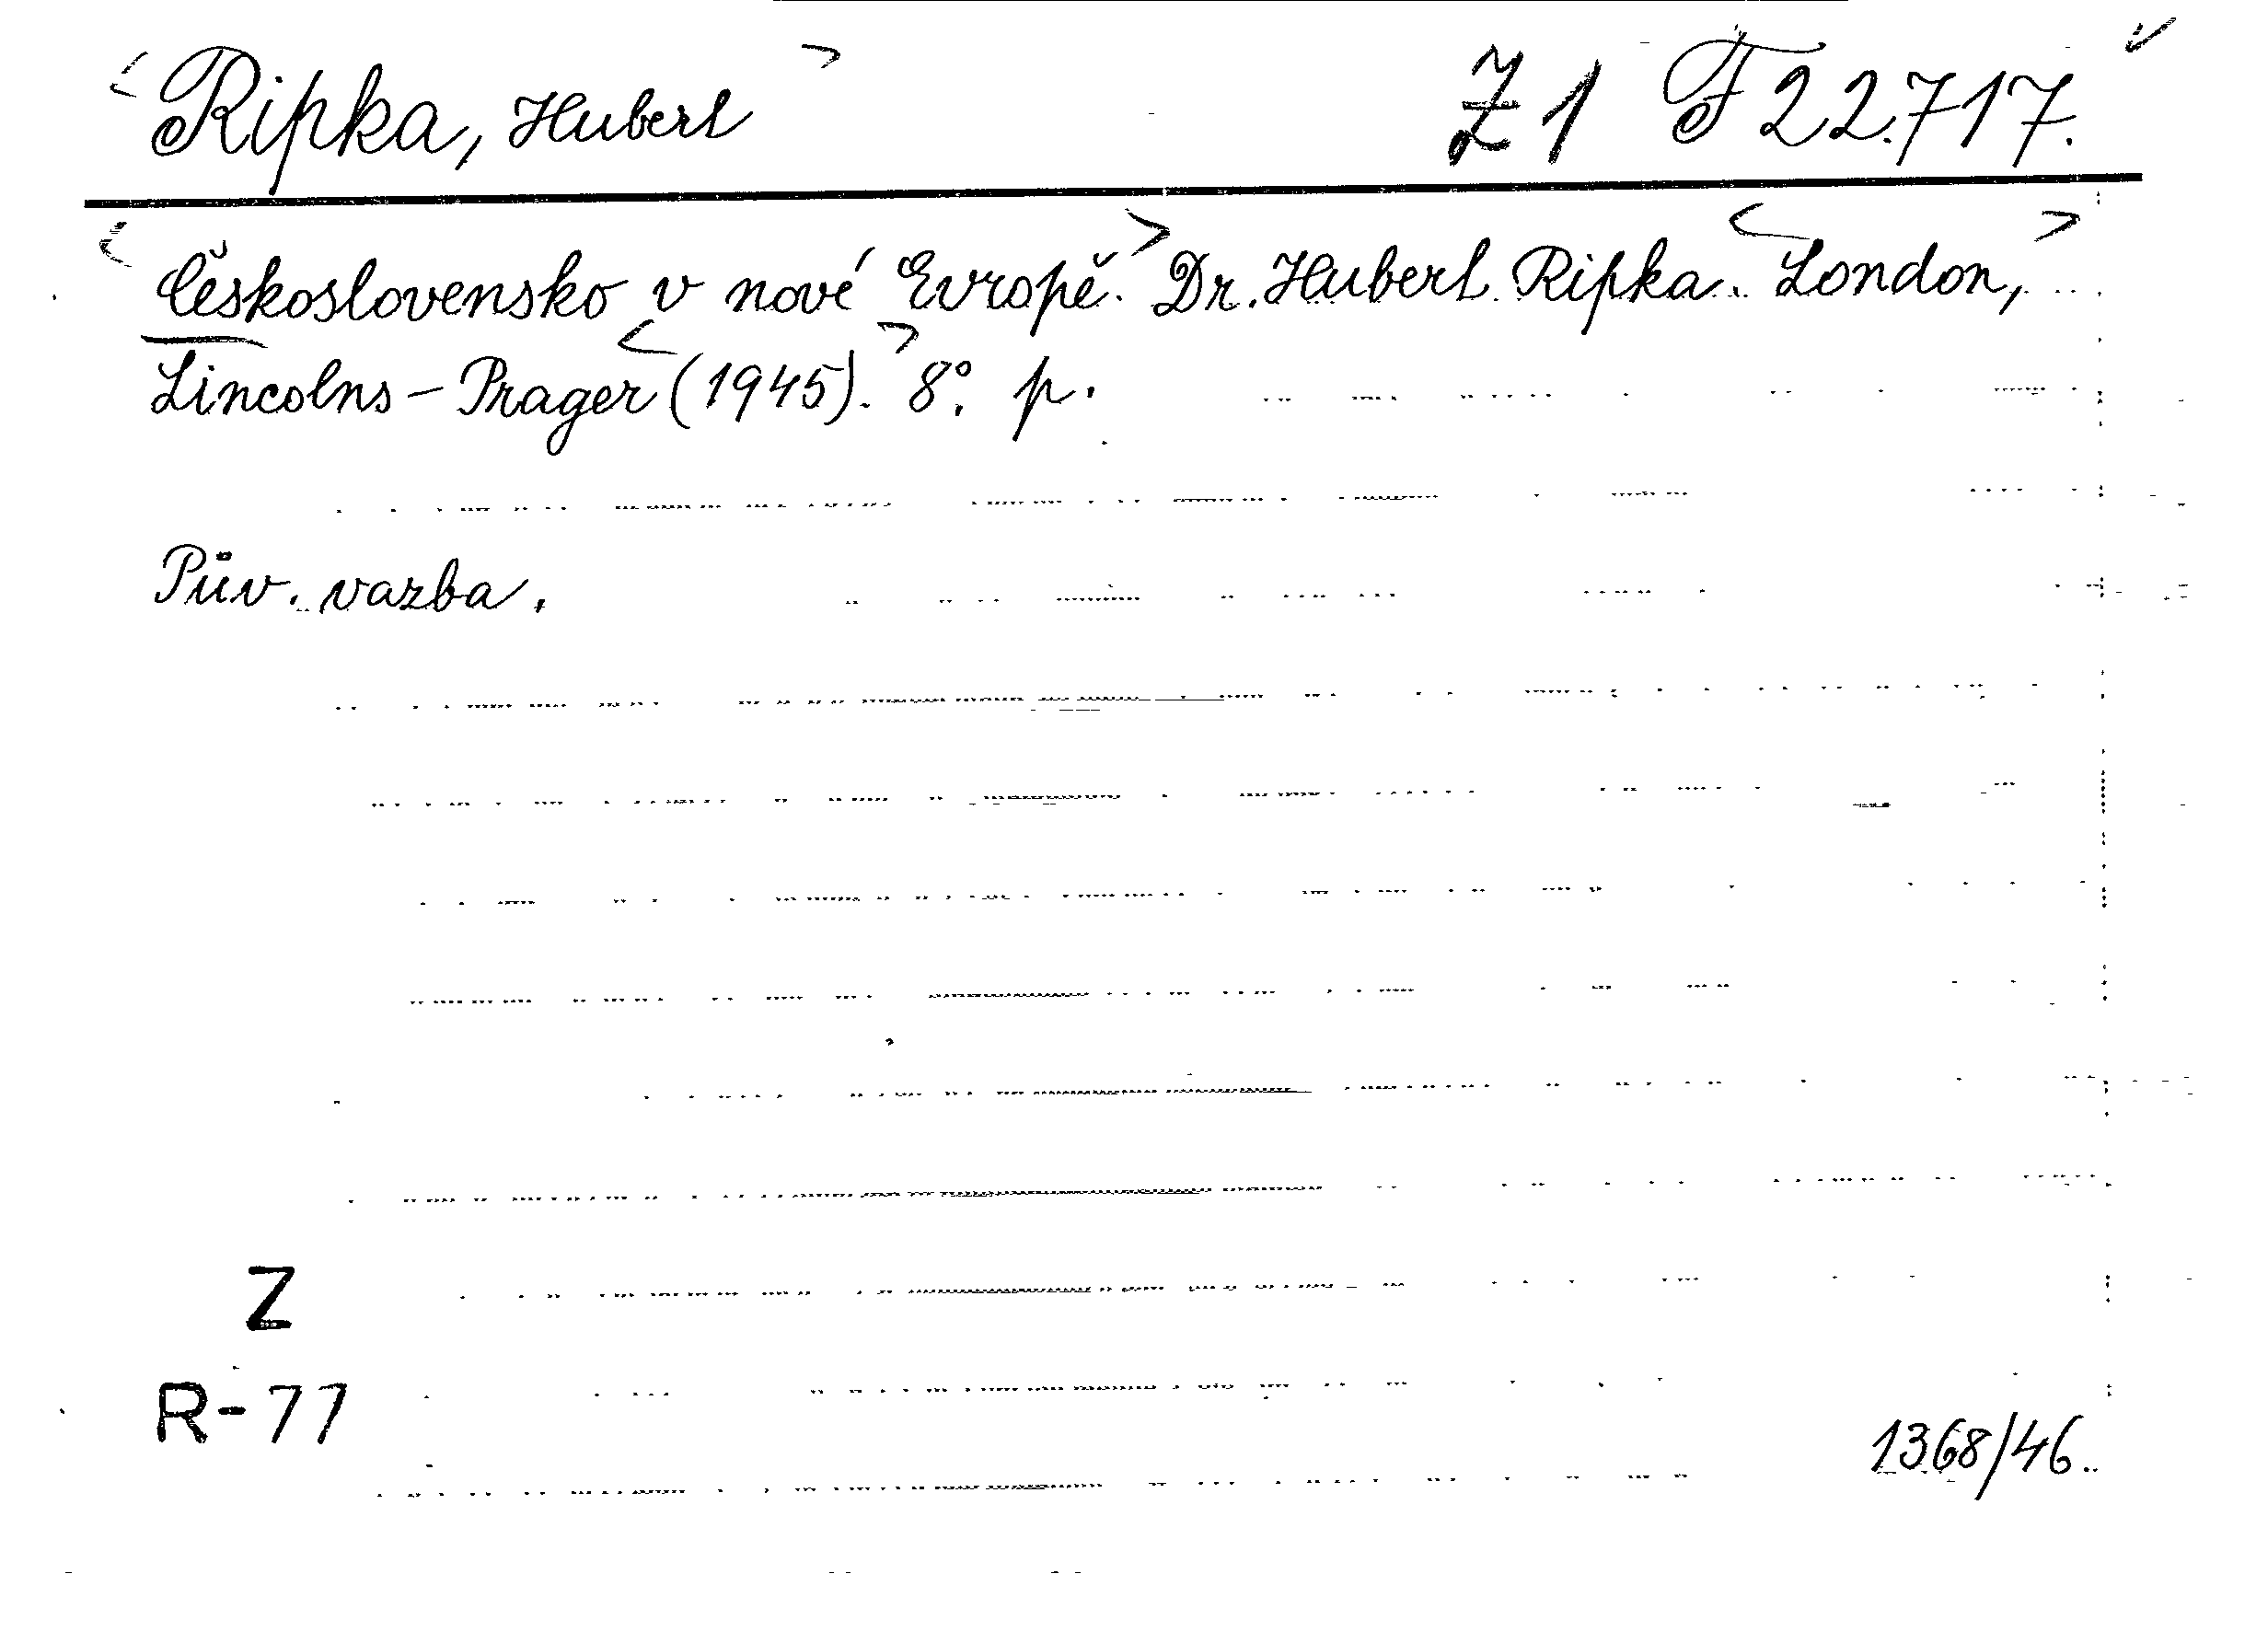 Ripka, Hubert Z 1 F 22.717.
Československo v nové Evropě. Dr. Hubert Ripka. London,
Lincolns-Prager (1945). 8°. p.
Pův. vazba.
Z
R-77
1368/46.